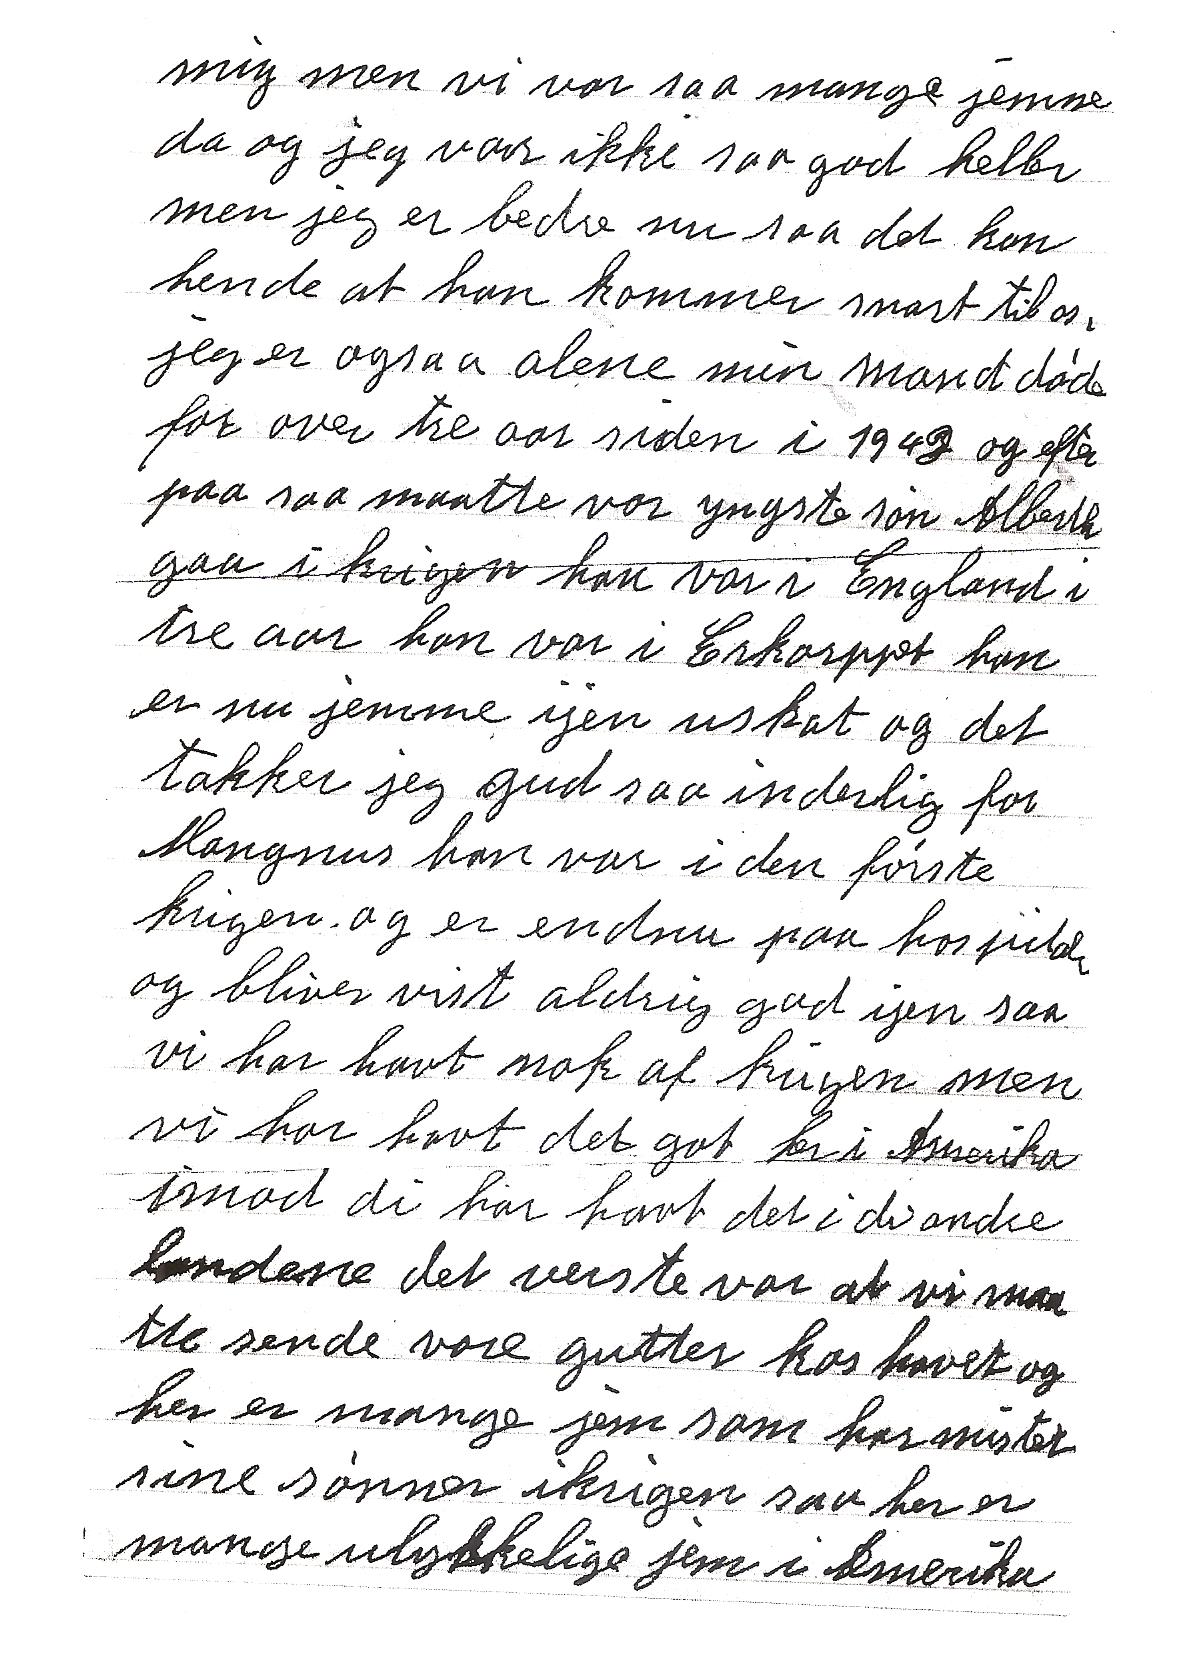 mig men vi var saa mange jemme
da og jeg var ikke saa god heller
men jeg er bedre nu saa det kan
hende at han kommer snart til os,
jeg er ogsaa alene min mand døde
for over tre aar siden i 1942 og efter
paa saa maatte vor yngste søn Albert
gaa i krigen han var i England i
tre aar han var i Erkorppet han
er nu jemme ijen uskat og det
takker jeg gud saa inderlig for
Mangnus han var i den første
krigen. og er endnu paa hospital
og bliver vist aldrig god ijen saa
vi har havt nok af krigen men
vi har havt det got her i Amerika
imod di har havt det i di andre
landene det verste var at vi maa
tte sende vore gutter kos havet og
her er mange jem som har mistet
sine sønner ikrigen saa her er
mange ulykkelige jem i Amerika